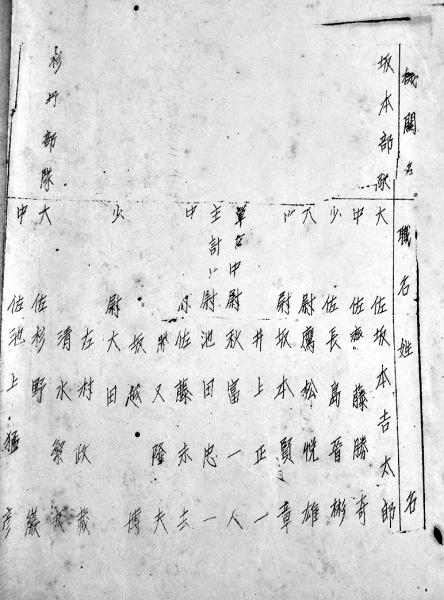 機關名 職名 姓名
坂本部隊 大佐 坂本吉太郎
中佐 藤勝奇
少佐 長島晋彬
大尉 鷹松悦雄
〃 尉 坂本賢章
井上正一
軍医中尉 秋富一人
主計〃尉 池田忠一
中尉 佐藤赤
又隆夫
坂越博
少尉 大田
左村政蔵
清水
杉野部隊 大佐 杉野巌
中佐 池上猛彦